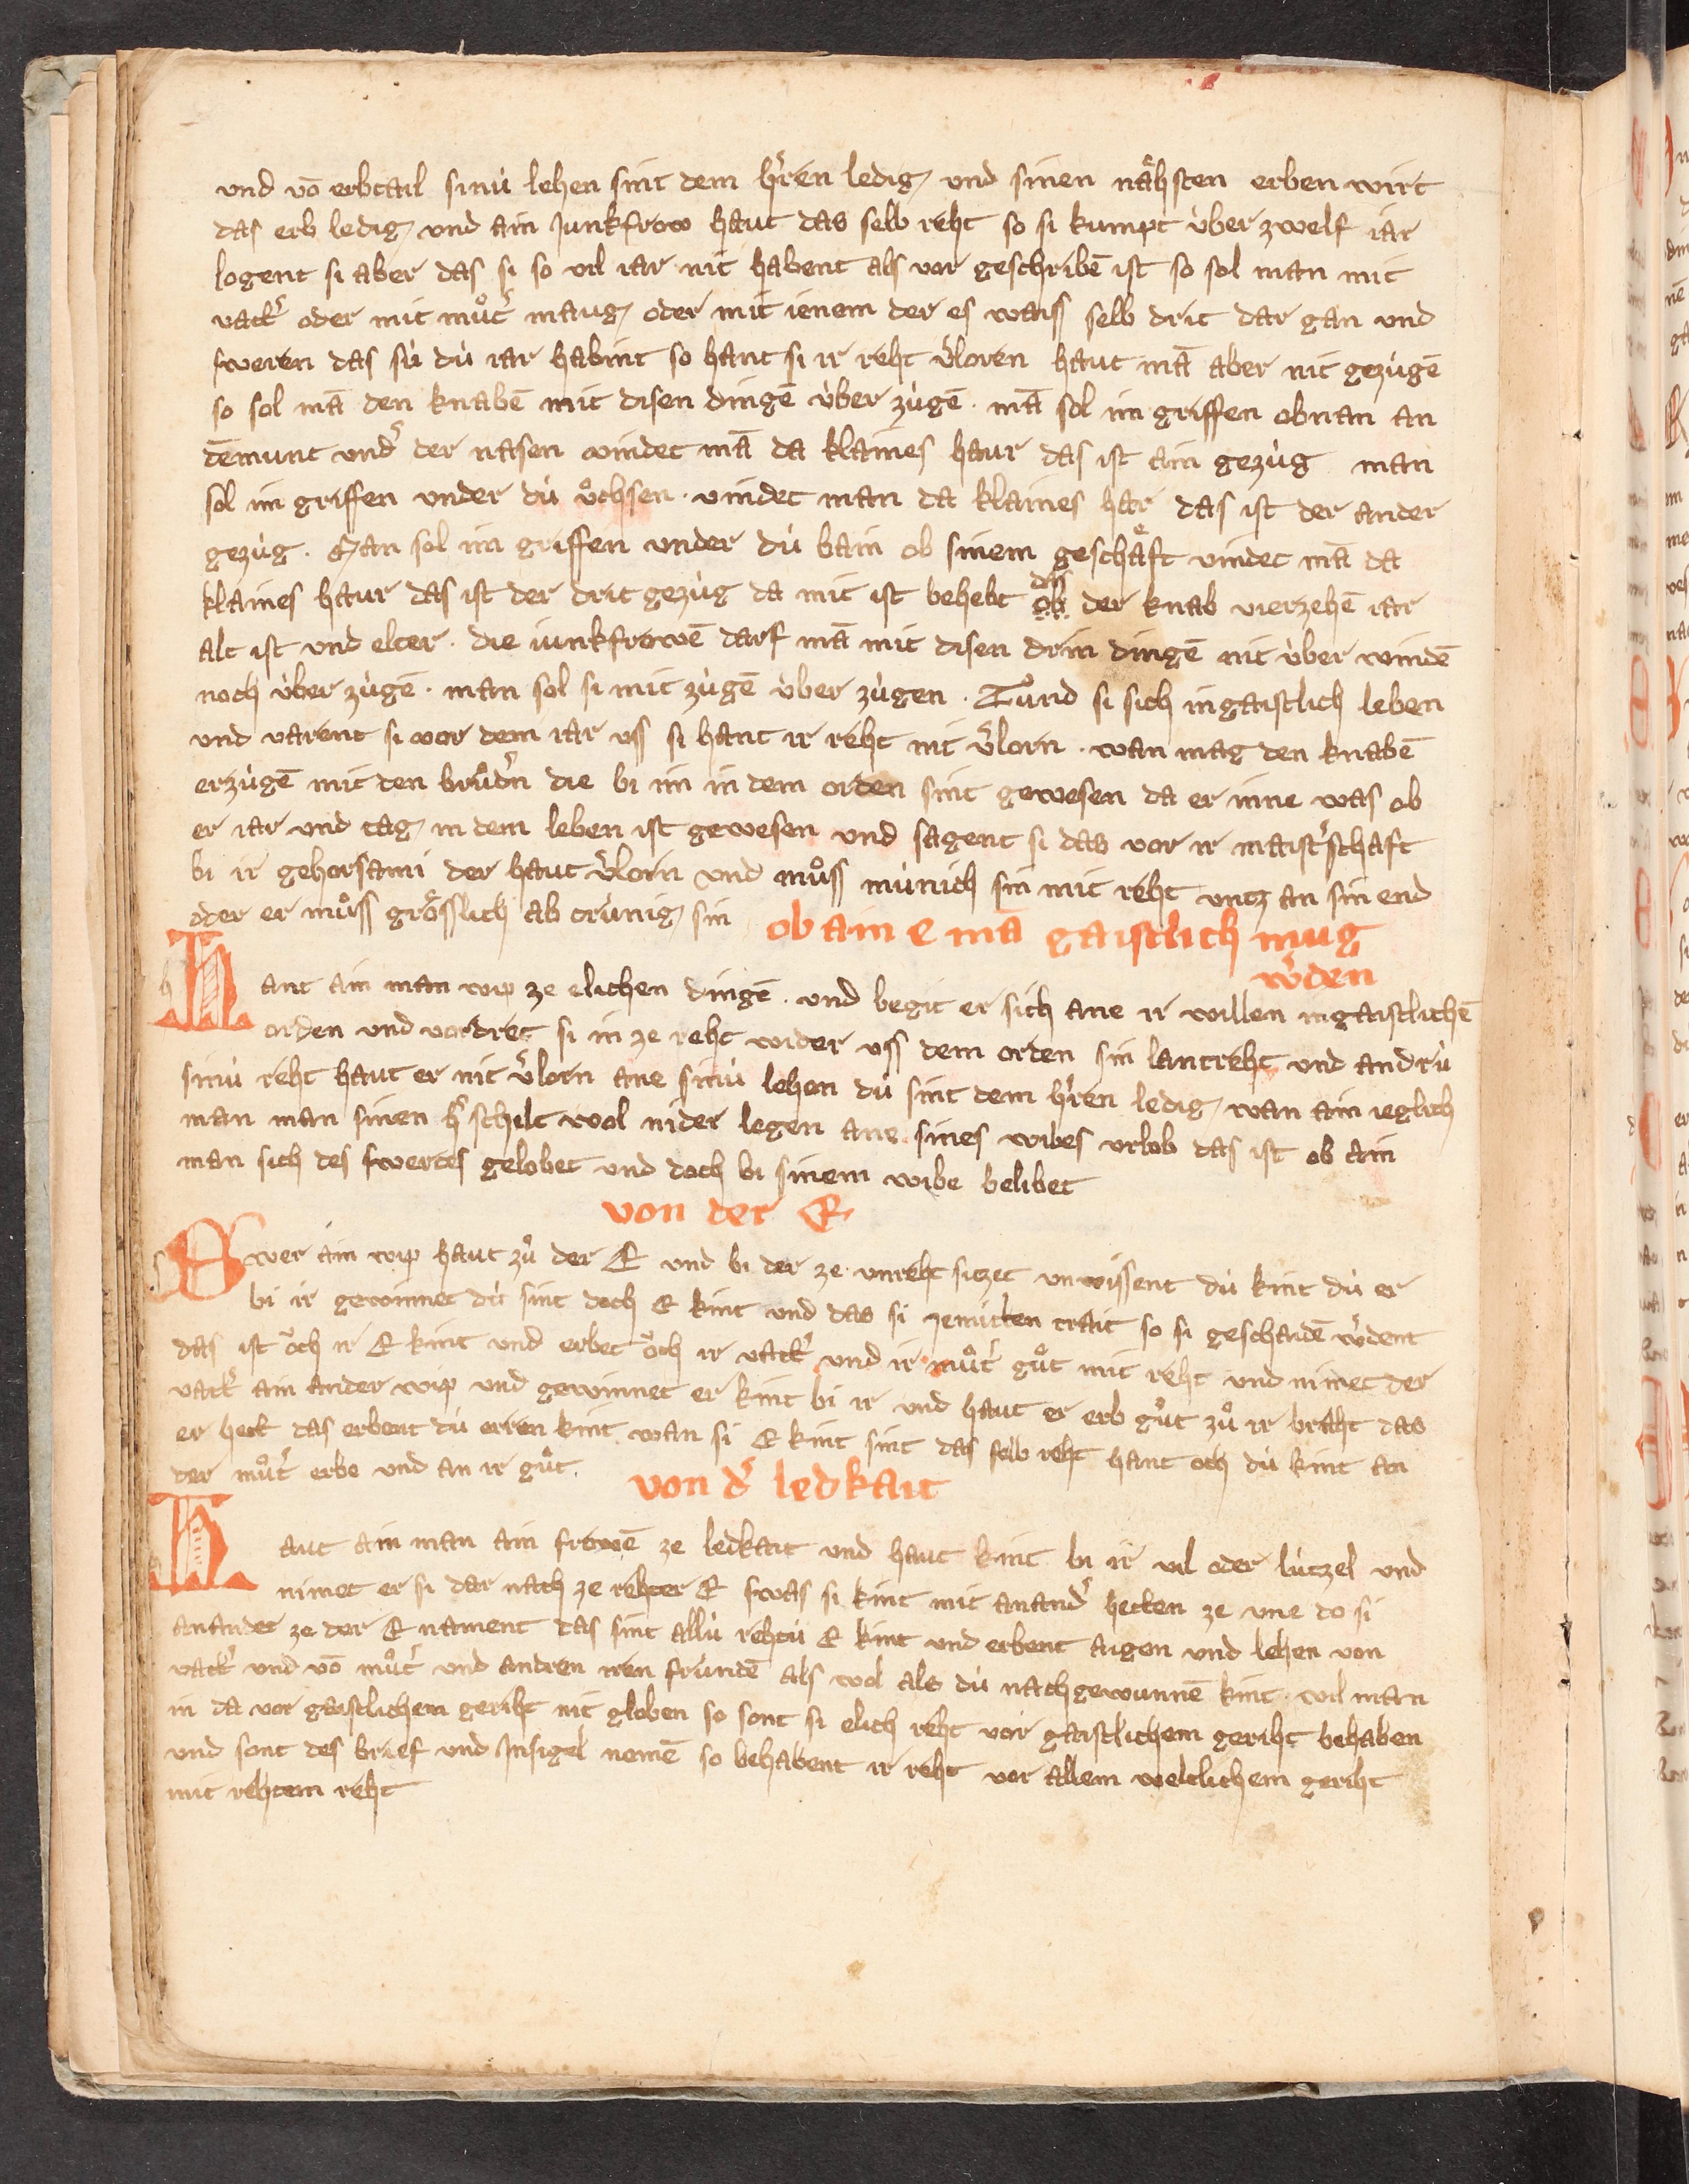 und vō erbtail sinú lehen sint dem hr̃en ledig und sinen nähsten erben wirt
das erb ledig und ain Junkfrow haut das selb reht so si kumpt úber zwelf iar
logent si aber das si so vil iar nit habent als vor geschribē ist so sol man mit
vatt͛ oder mit mů̊t͛ maug oder mit ienem der es waiss selb drit dar gan und
sweren das sú dú iar habint so hant si ir reht v͛loren haut mā aber nit gezúgē
so sol mā den knabē mit disen dingē úber zúgē · mā sol im griffen obnan an
dē munt und͛ der nasen vindet mā da klaines haur das ist ain gezúg man
sol im griffen under dú ů̊chsen · vindet man da klaines har das ist der ander
gezúg · Man sol im griffen under dú bain ob sinem geschäft vindet mā da
klaines haur das ist der drit gezúg da mit ist behebt das ob der knab vierzehē iar
alt ist und elter · die iunkfrowē darf mā mit disen drin dingē nit úber windē
noch úber zúgē · man sol si mit zúgē úber zúgen · Tůnd si sich in gaistlich leben
und varent si vor dem iar uss si hant ir reht nit v͛lorn · wan mag den knabē
erzúgē mit den brůd͛n die bi im in dem orden sint gewesen da er inne was ob
er iar und tag in dem leben ist gewesen und sagent si das vor ir maist͛schaft
bi ir gehorsami der haut v͛lorn und můss múnich sin mit reht untz an sin end
oder er můss grösslich ab trúnig sin
ob ain e mā gaistlich mug
w͛den
Hant ain man wip ze elichen dingē · und begit er sich ane ir willen in gaistlichē
orden und vordret si in ze reht wider uss dem orden sin lantreht und andrú
sinú reht haut er nit v͛lorn ane sinú lehen dú sint dem hr̃en ledig wan ain ieglich
man man sinen h͛schilt wol nider legen ane sines wibes urlob das ist ob ain
man sich des swertes gelobet und doch bi sinem wibe belibet
von der E
Swer ain wip haut zů der E und bi der ze unreht sitzet unwissent dú kint dú er
bi ir gewinnet dú sint doch E kint und das si ze mitten trait so si geschaidē w͛dent
das ist ǒch ir E kint und erbet ǒch ir vatt͛ und ir můt͛ gůt mit reht und nimet der
vatt͛ ain ander wip und gewinnet er kint bi ir und haut er erb gůt zů ir braht das
er hett das erbent dú erren kint wan si E kint sint das selb reht hant och dú kint an
der můt͛ erbe und an ir gůt.
von d͛ ledkait
Haut ain man ain frowē ze ledkait und haut kint bi ir vil oder lútzel und
nimet er si dar nach ze rehter E swas si kint mit anand͛ hetten ze une do si
anander ze der E nament das sint allú rehtú E kint und erbent aigen und lehen von
vatt͛ und vō můt͛ und andren iren frúndē als wol als dú nach gewunnē kint · wil man
in da vor gaistlichem geriht nit globen so sont si elich reht vor gaistlichem geriht behaben
und sont des brief und Insigel nemē so behabent ir reht vor allem weltlichem geriht
mit rehtem reht